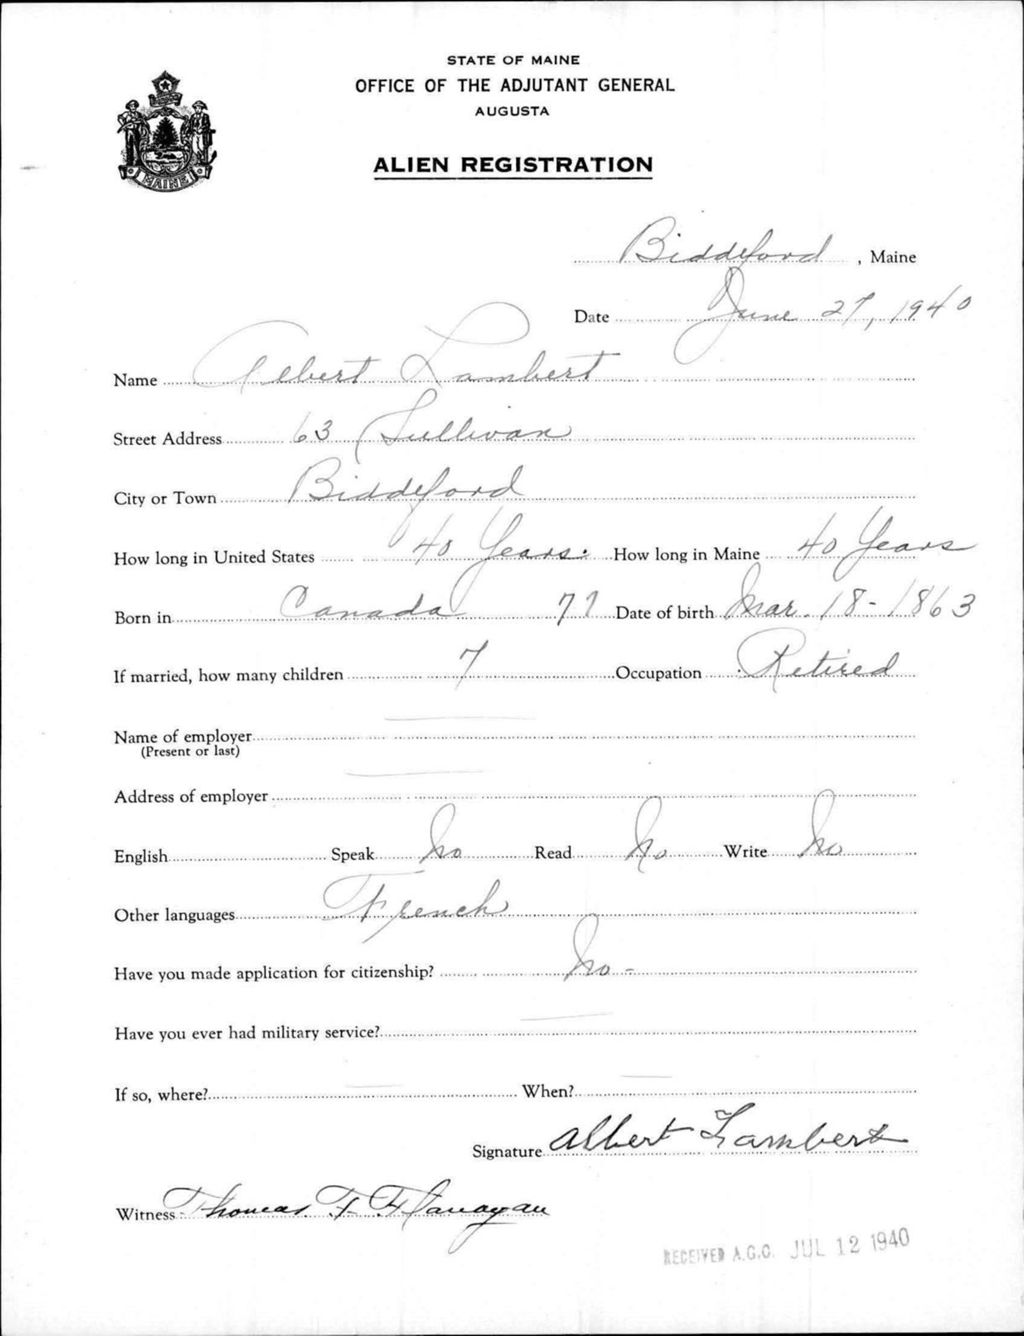 STATE OF MAINE
OFFICE OF THE ADJUTANT GENERAL
AUGUSTA
ALIEN REGISTRATION
MAINE
Biddeford, Maine
Date June 27, 1940
Name Albert Lambert
Street Address 63 Sullivan
City or Town Biddeford
How long in United States 40 Years. How long in Maine 40 Years
Born in Canada 77 Date of birth Mar. 18-1863
If married, how many children 7 Occupation Retired
Name of employer
(Present or last)
Address of employer
English Speak No Read No Write No
Other languages French
Have you made application for citizenship? No -
Have you ever had military service?
If so, where? When?
Signature Albert Lambert
Witness Thomas F. Flanagan
RECEIVED A.G.O. JUL 12 1940